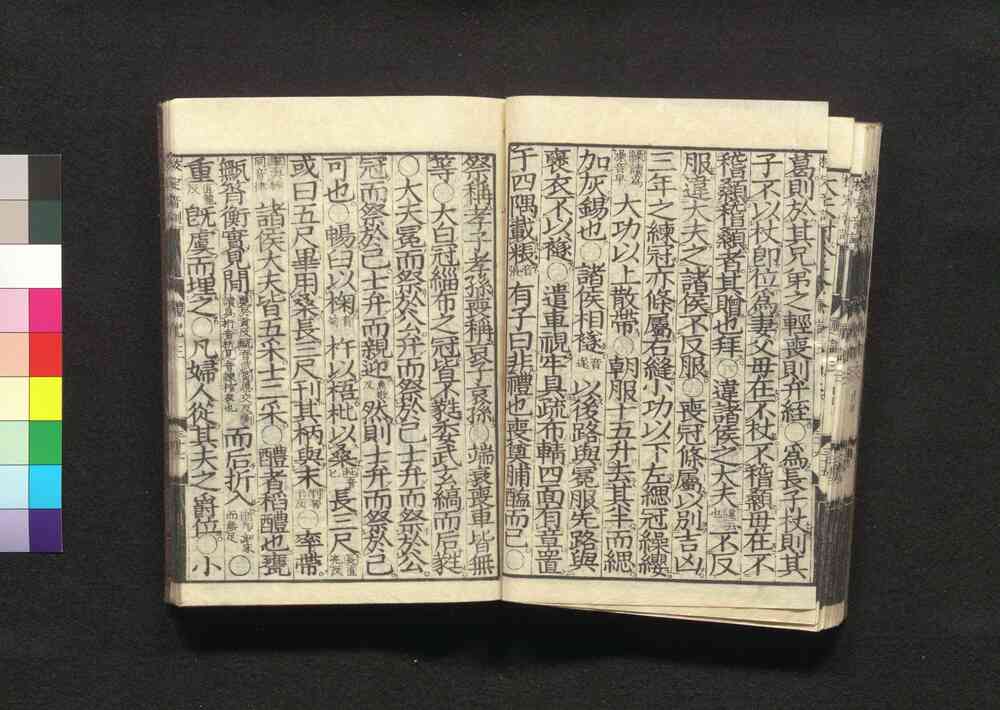 葛則於其兄弟之輕喪則弁絰○爲長子杖則其
子不以杖即位爲妻父母在不杖不稽顙母在不
稽顙稽顙者其贈也拜○違諸侯之大夫不反
服違大夫之諸侯不反服○喪冠條屬以別吉凶
三年之練冠亦條屬右縫小功以下左緦冠繰纓
大功以上散帶○朝服十五升去其半而緦
加灰錫也○諸侯相襚音遂以後路與冕服先路與
褻衣不以襚○遣車視牢具疏布輤四面有章置
于四隅載粻有子曰非禮也喪奠脯醢而已○
祭稱孝子孝孫喪稱哀子哀孫○端衰喪車皆無
等○大白冠緇布之冠皆不蕤委武玄縞而后蕤
○大夫冕而祭於公弁而祭於己士弁而祭於公
冠而祭於己士弁而親迎然則士弁而祭於己
可也○暢臼以椈杵以梧枇以桑長三尺
或曰五尺畢用桑長三尺刊其柄與末○率帶
諸侯大夫皆五采士二采○醴者稻醴也甕
甒筲衡實見間而后折入○
重既虞而埋之○凡婦人從其夫之爵位○小